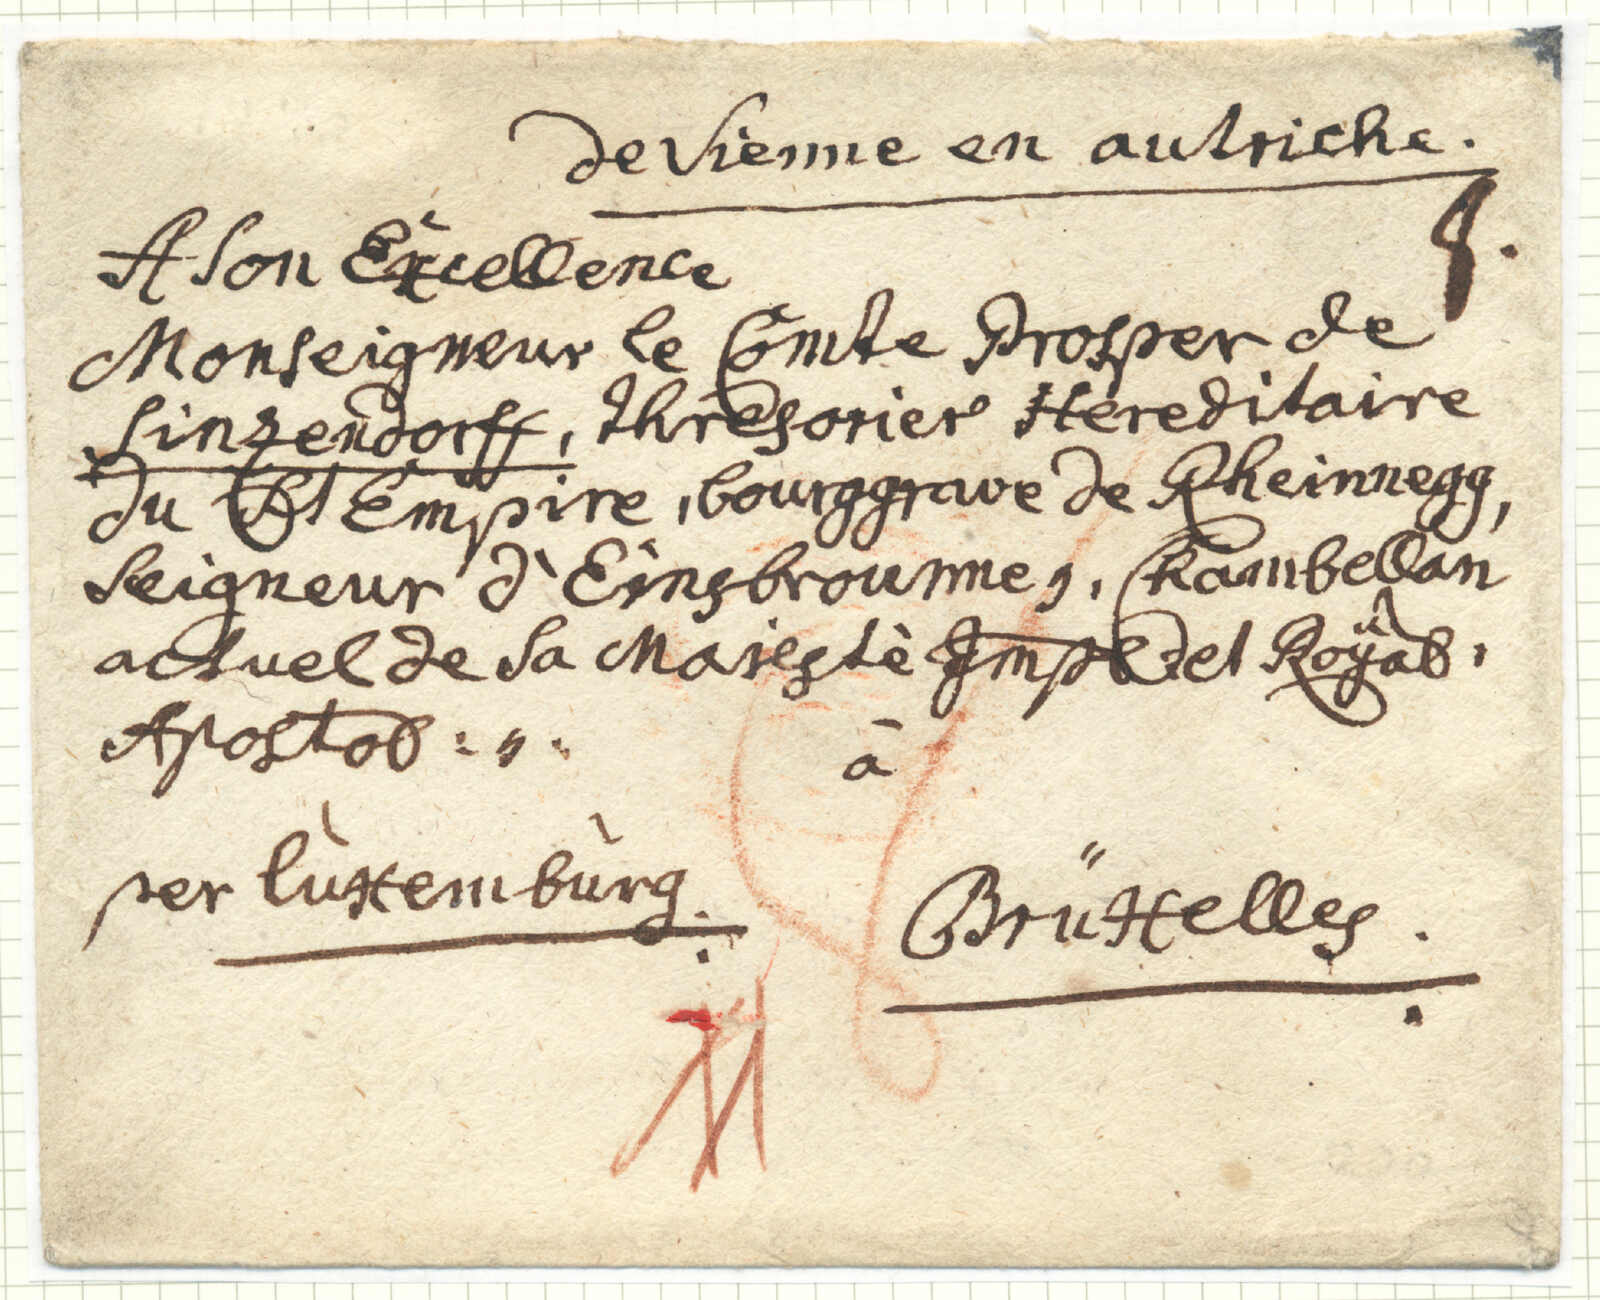 de Vienne en autriche.
8.
A Son Excellence
Monseigneur le Comte Prosper de
Sinzendorff, thresorier Hereditaire
du St Empire, bourggrave de Rheinnegg,
Seigneur d'Einsbrounnes, Chambellan
actuel de Sa Majestè Imple et Royäl.
Apostol:
à
per Luxembùrg.
Brüxelles.